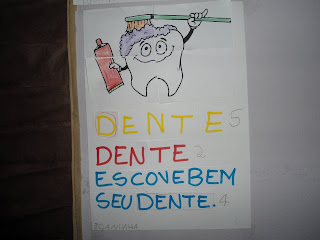 DENTE 5
DENTE 2
ESCOVE BEM
SEU DENTE. 4